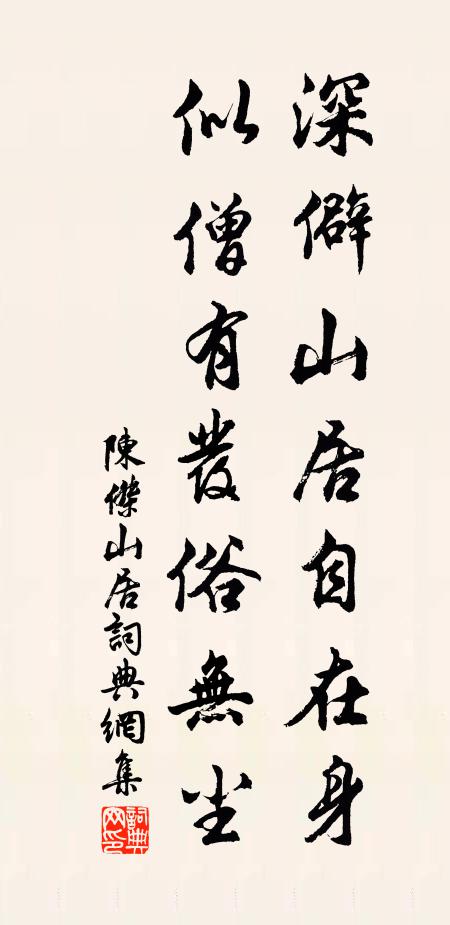 深僻山居自在身
似僧有發俗無尘
陳傑山居詞典網集
詞典網印